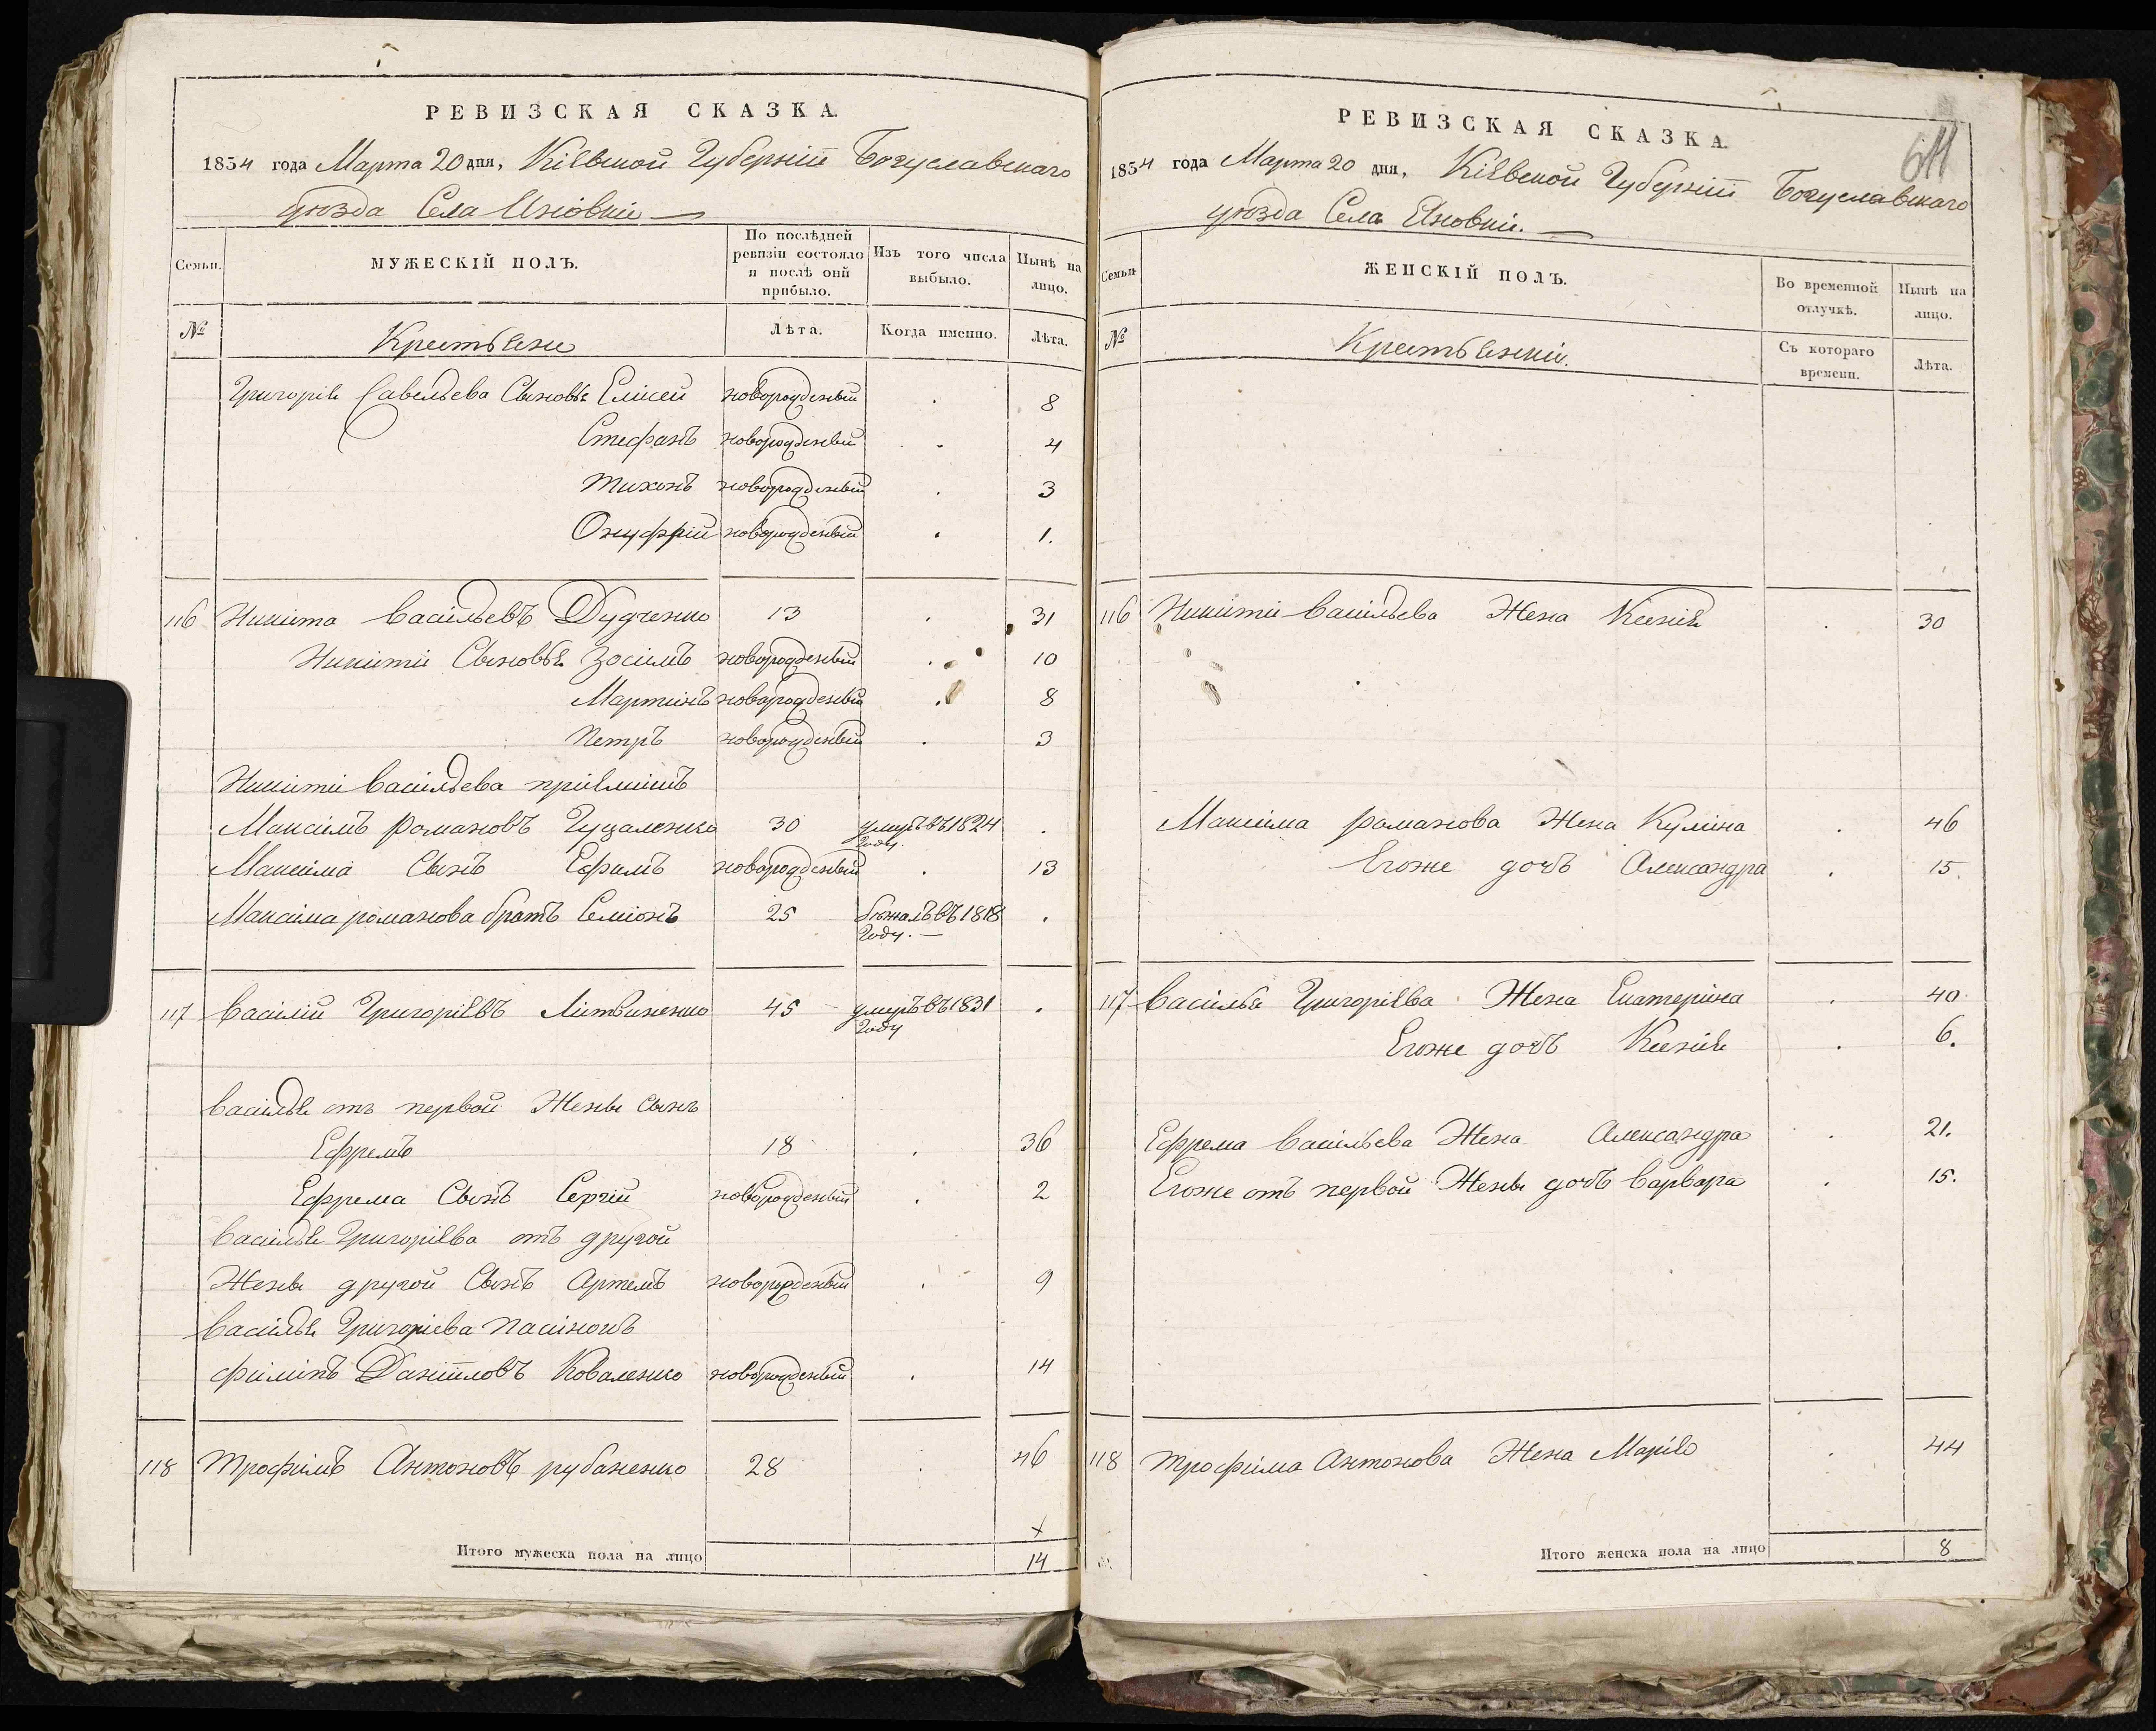 РЕВИЗСКАЯ СКАЗКА.
1834 года Марта 20 дня, Кіевской Губерніи Богуславскаго
уѣзда Села Яновки
Семьи.
МУЖЕСКІЙ ПОЛЪ.
По послѣдней ревизіи состояло и послѣ оній прибыло.
Изъ того числа выбыло.
Нынѣ на лицо.
№
Крестьяне
Лѣта.
Когда именно.
Лѣта.
Григорія Савельева Сыновья Елисей новорожденный 8
Стефанъ новорожденный 4
Тихонъ новорожденный 3
Онуфрій новорожденный 1.
116 Никита Васильевъ Дудченко 13 31
Никиты Сыновья Зосимъ новорожденный 10
Мартинъ новорожденный 8
Петръ новорожденный 3
Никиты Васильева пріемышъ
Максимъ Романовъ Гуцаленко 30 умеръ въ 1824 году.
Максима Сынъ Ефимъ новорожденный 13
Максима романова братъ Семіонъ 25 бѣжалъ въ 1818 году.
117 Василій Григоріевъ Литвиненко 45 умеръ въ 1831 году
Василья отъ первой Жены сынъ
Ефремъ 18 36
Ефрема Сынъ Сергій новорожденный 2
Василья Григоріева отъ другой
Жены другой Сынъ Артемъ новорожденный 9
Василья Григоріева пасынокъ
Филипъ Даніиловъ Коваленко новорожденный 14
118 Трофимъ Антоновъ рубаненко 28 46
х
Итого мужеска пола на лицо 14
611
РЕВИЗСКАЯ СКАЗКА.
1834 года Марта 20 дня, Кіевской Губерніи Богуславскаго
уѣзда Села Яновки.
Семьи
ЖЕНСКІЙ ПОЛЪ.
Во временной отлучкѣ.
Нынѣ на лицо.
№
Крестьянки.
Съ котораго времени.
Лѣта.
116 Никиты Васильева Жена Ксенія 30
Максима романова Жена Кулина 46
Егоже дочь Александра 15.
117 Василья Григоріева Жена Екатерина 40.
Егоже дочь Ксенія 6.
Ефрема Васильева Жена Александра 21.
Егоже отъ первой Жены дочь Варвара 15.
118 Трофима Антонова Жена Марія 44
Итого женска пола на лицо 8